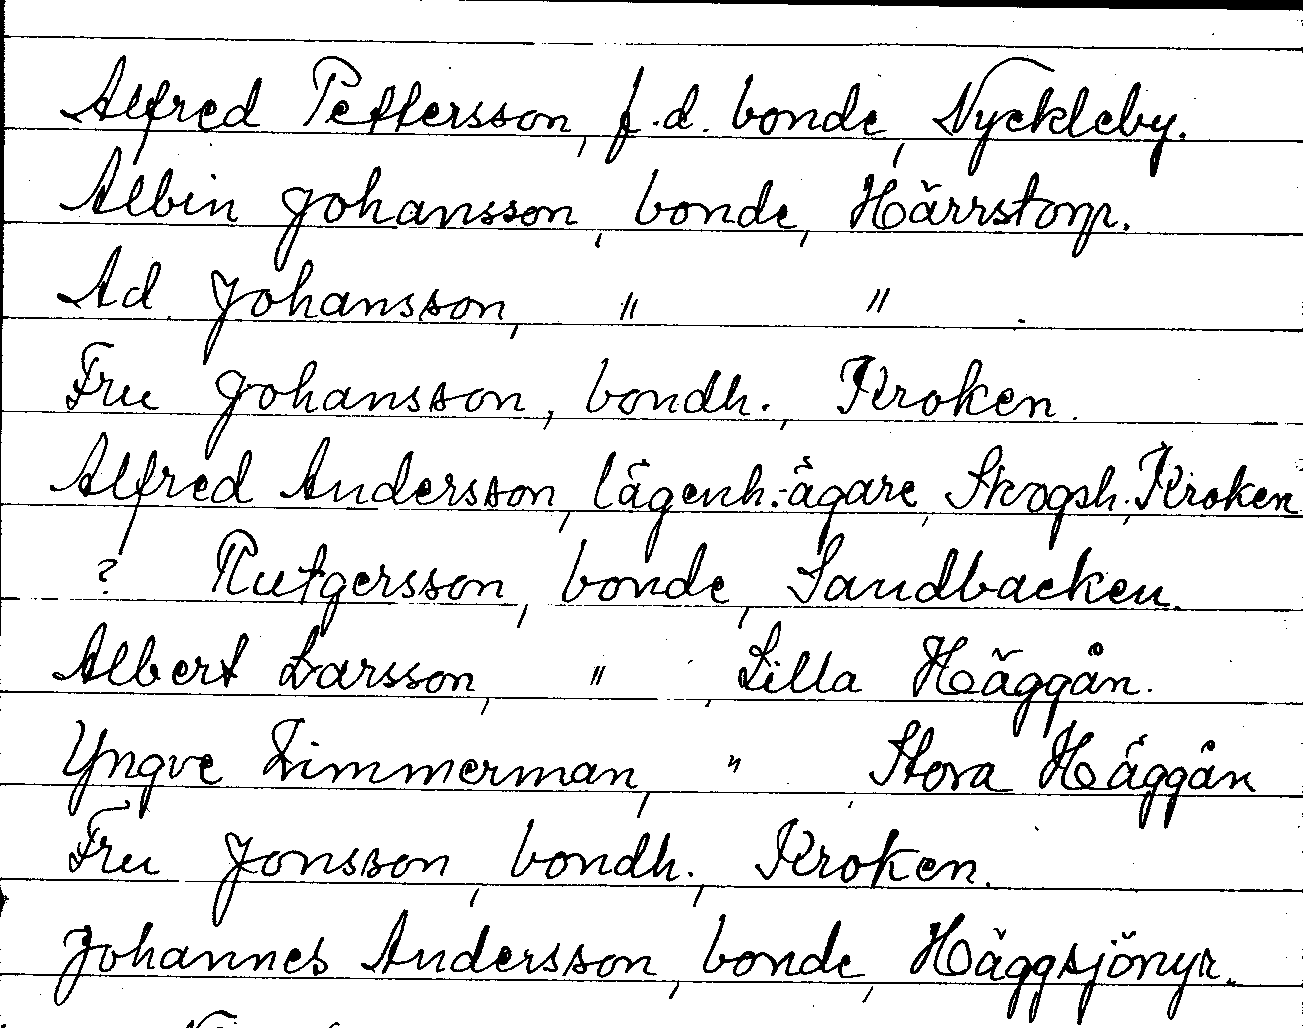 Alfred Pettersson, f.d. bonde, Nyckleby.
Albin Johansson, bonde, Härrstorp.
Ad. Johansson, " " .
Fru Johansson, bondh., Kroken.
Alfred Andersson, lägenh.-ägare, Skogsh. Kroken
? Rutgersson, bonde, Sandbacken.
Albert Larsson, " , Lilla Häggån.
Yngve Zimmerman, " , Stora Häggån
Fru Jonsson, bondh., Kroken.
Johannes Andersson, bonde, Häggsjöryr.